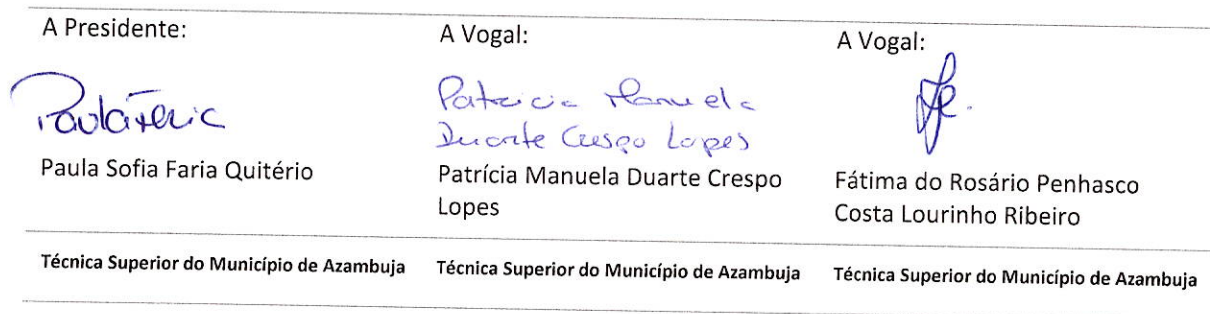 A Presidente:
Paula Faria
Paula Sofia Faria Quitério
Técnica Superior do Município de Azambuja
A Vogal:
Patricia Manuela
Duarte Crespo Lopes
Patrícia Manuela Duarte Crespo
Lopes
Técnica Superior do Município de Azambuja
A Vogal:
Fátima do Rosário Penhasco
Costa Lourinho Ribeiro
Técnica Superior do Município de Azambuja